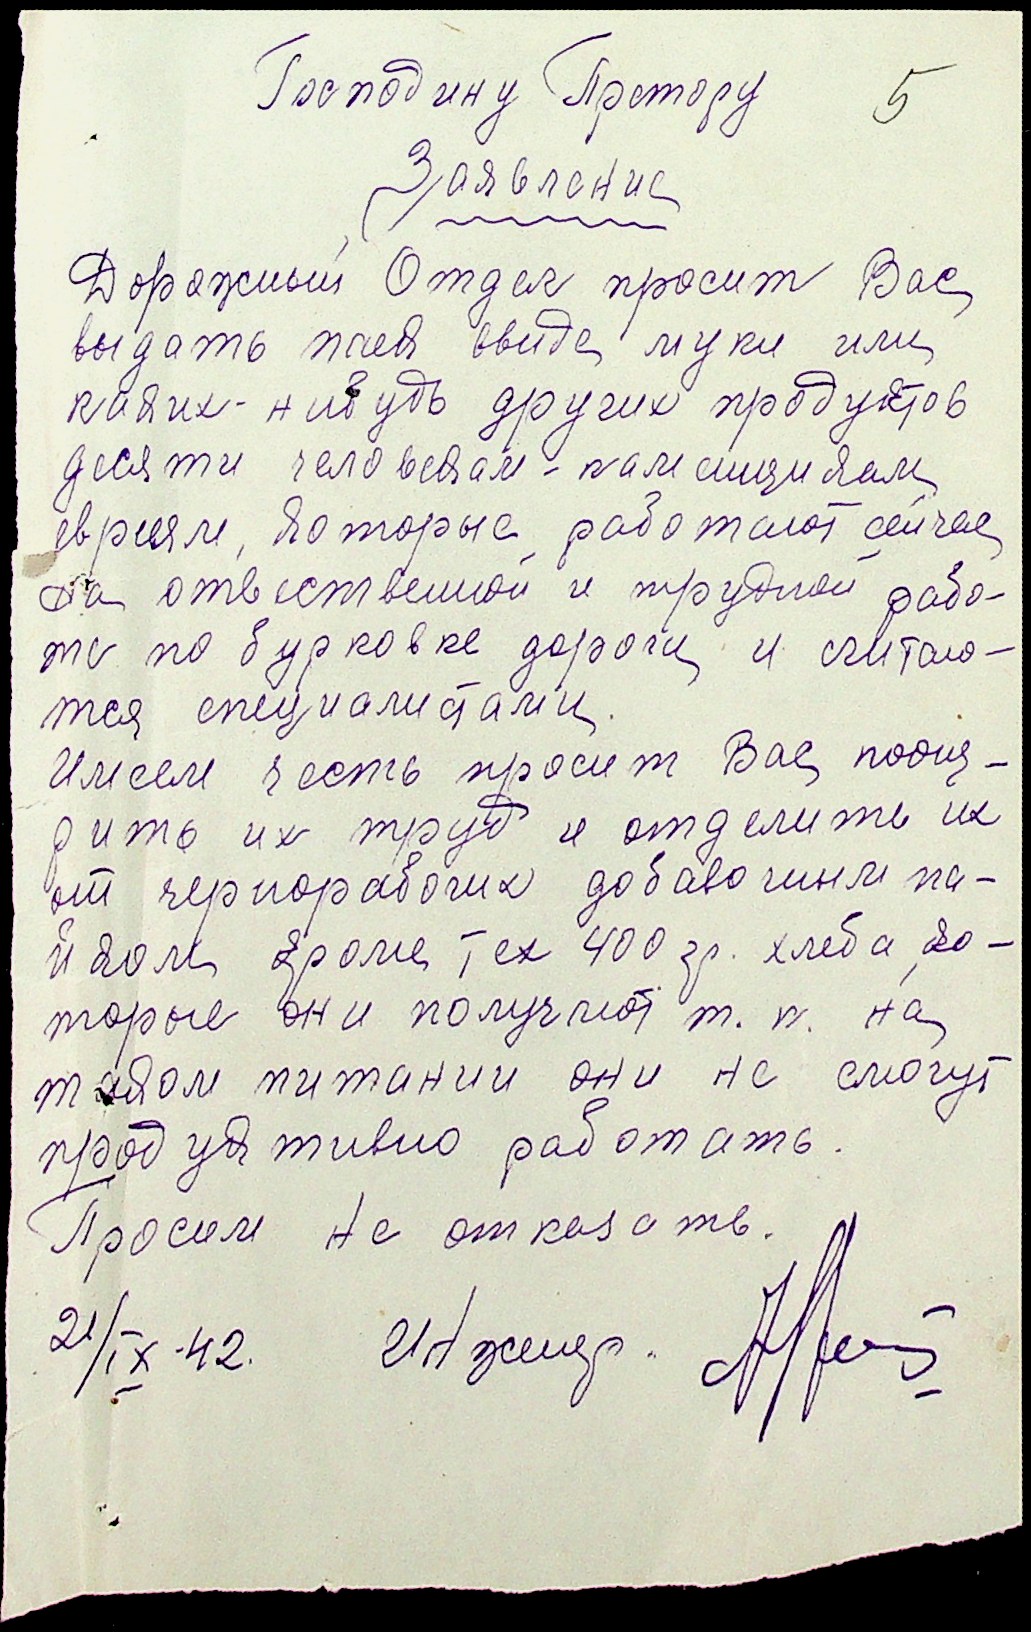 Господину Претору
5
Заявление
Дорожный Отдел просит Вас
выдать паек ввиде муки или
каких-нибудь других продуктов
десяти человекам-каменщикам
евреям, которые работают сейчас
на ответственной и трудной рабо-
те по бурковке дороги и считаю-
тся специалистами.
Имеем честь просит Вас пооще-
рить их труд и отделить их
от чернорабочих добавочным па-
йком кроме тех 400 гр. хлеба ко-
торые они получают т. к. на
таком питании они не смогут
продуктивно работать.
Просим не отказать.
21/IX-42. Инженер.